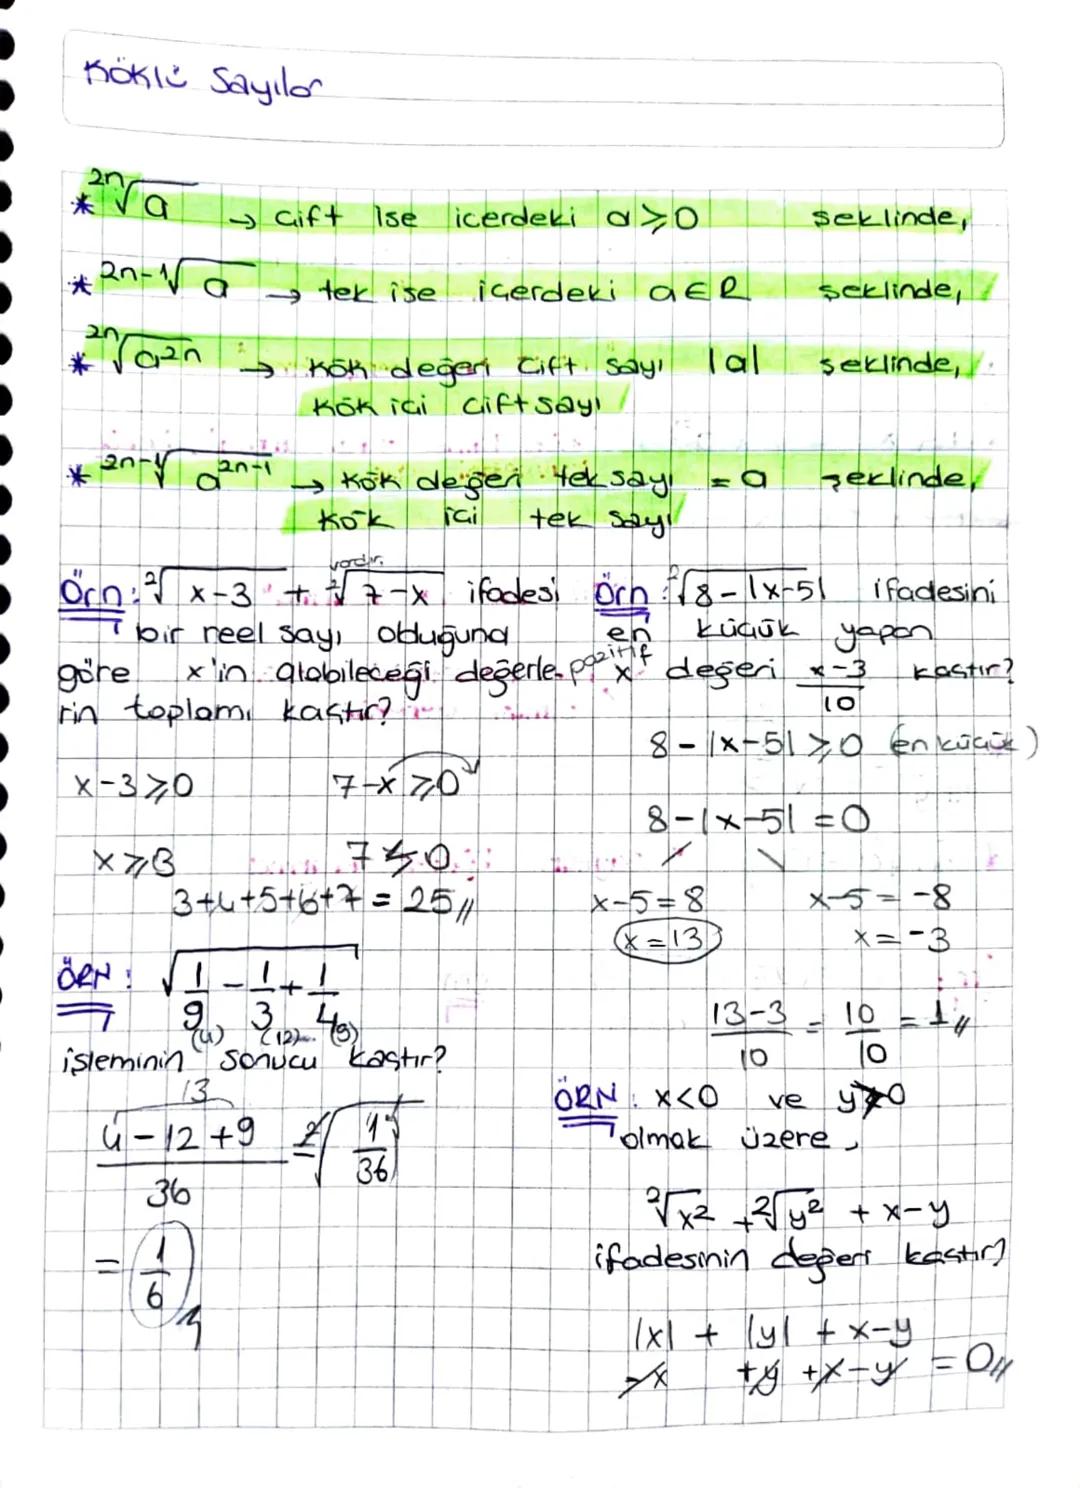 Köklü Sayılar
* ²ⁿ√a → Çift ise içerdeki a ≥ 0 şeklinde,
* ²ⁿ⁻¹√a → tek ise içerdeki a ∈ R şeklinde,
* ²ⁿ√a²ⁿ → kök değeri Çift sayı |a| şeklinde,
kök içi Çift sayı
* ²ⁿ⁻¹√a²ⁿ⁻¹ → kök değeri tek sayı = a şeklinde,
kök içi tek sayı
vardır.
Örn: ²√x-3 + ²√7-x ifadesi
bir reel sayı olduğuna
göre x'in alabileceği değerle-
rin toplamı kaçtır?
x-3 ≥ 0 7-x ≥ 0
x ≥ 3 7 ≰ 0
3+4+5+6+7 = 25//
ÖRN: √1/9 - 1/3 + 1/4
(4) (12) (9)
işleminin sonucu kaçtır?
13
4-12+9/36 = ²√1/36
= 1/6 //
Örn: ²√8-|x-5| ifadesini
en küçük yapan
pozitif x değeri x-3/10 kaçtır?
8-|x-5| ≥ 0 (en küçük)
8-|x-5| = 0
x-5=8 x-5=-8
x=13 x=-3
13-3/10 = 10/10 = 1//
ÖRN: x<0 ve y>0
olmak üzere,
²√x² + ²√y² + x-y
ifadesinin değeri kaçtır?
|x| + |y| + x-y
-x +y +x-y = 0//